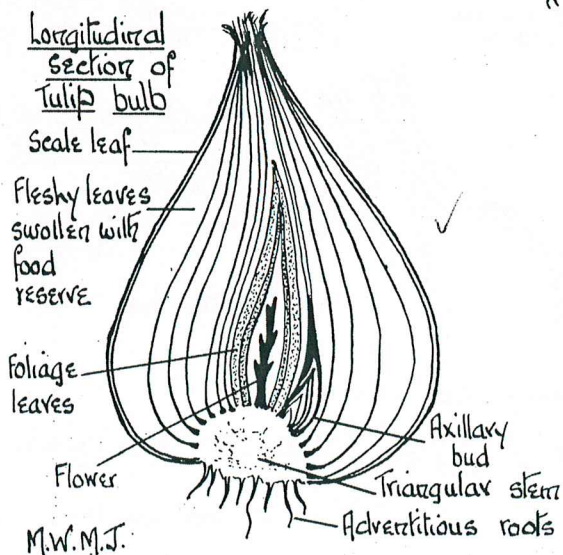 Longitudinal
section of
Tulip bulb
Scale leaf
Fleshy leaves
swollen with
food
reserve
Foliage
leaves
Flower
Axillary
bud
Triangular stem
Adventitious roots
M.W.M.J.